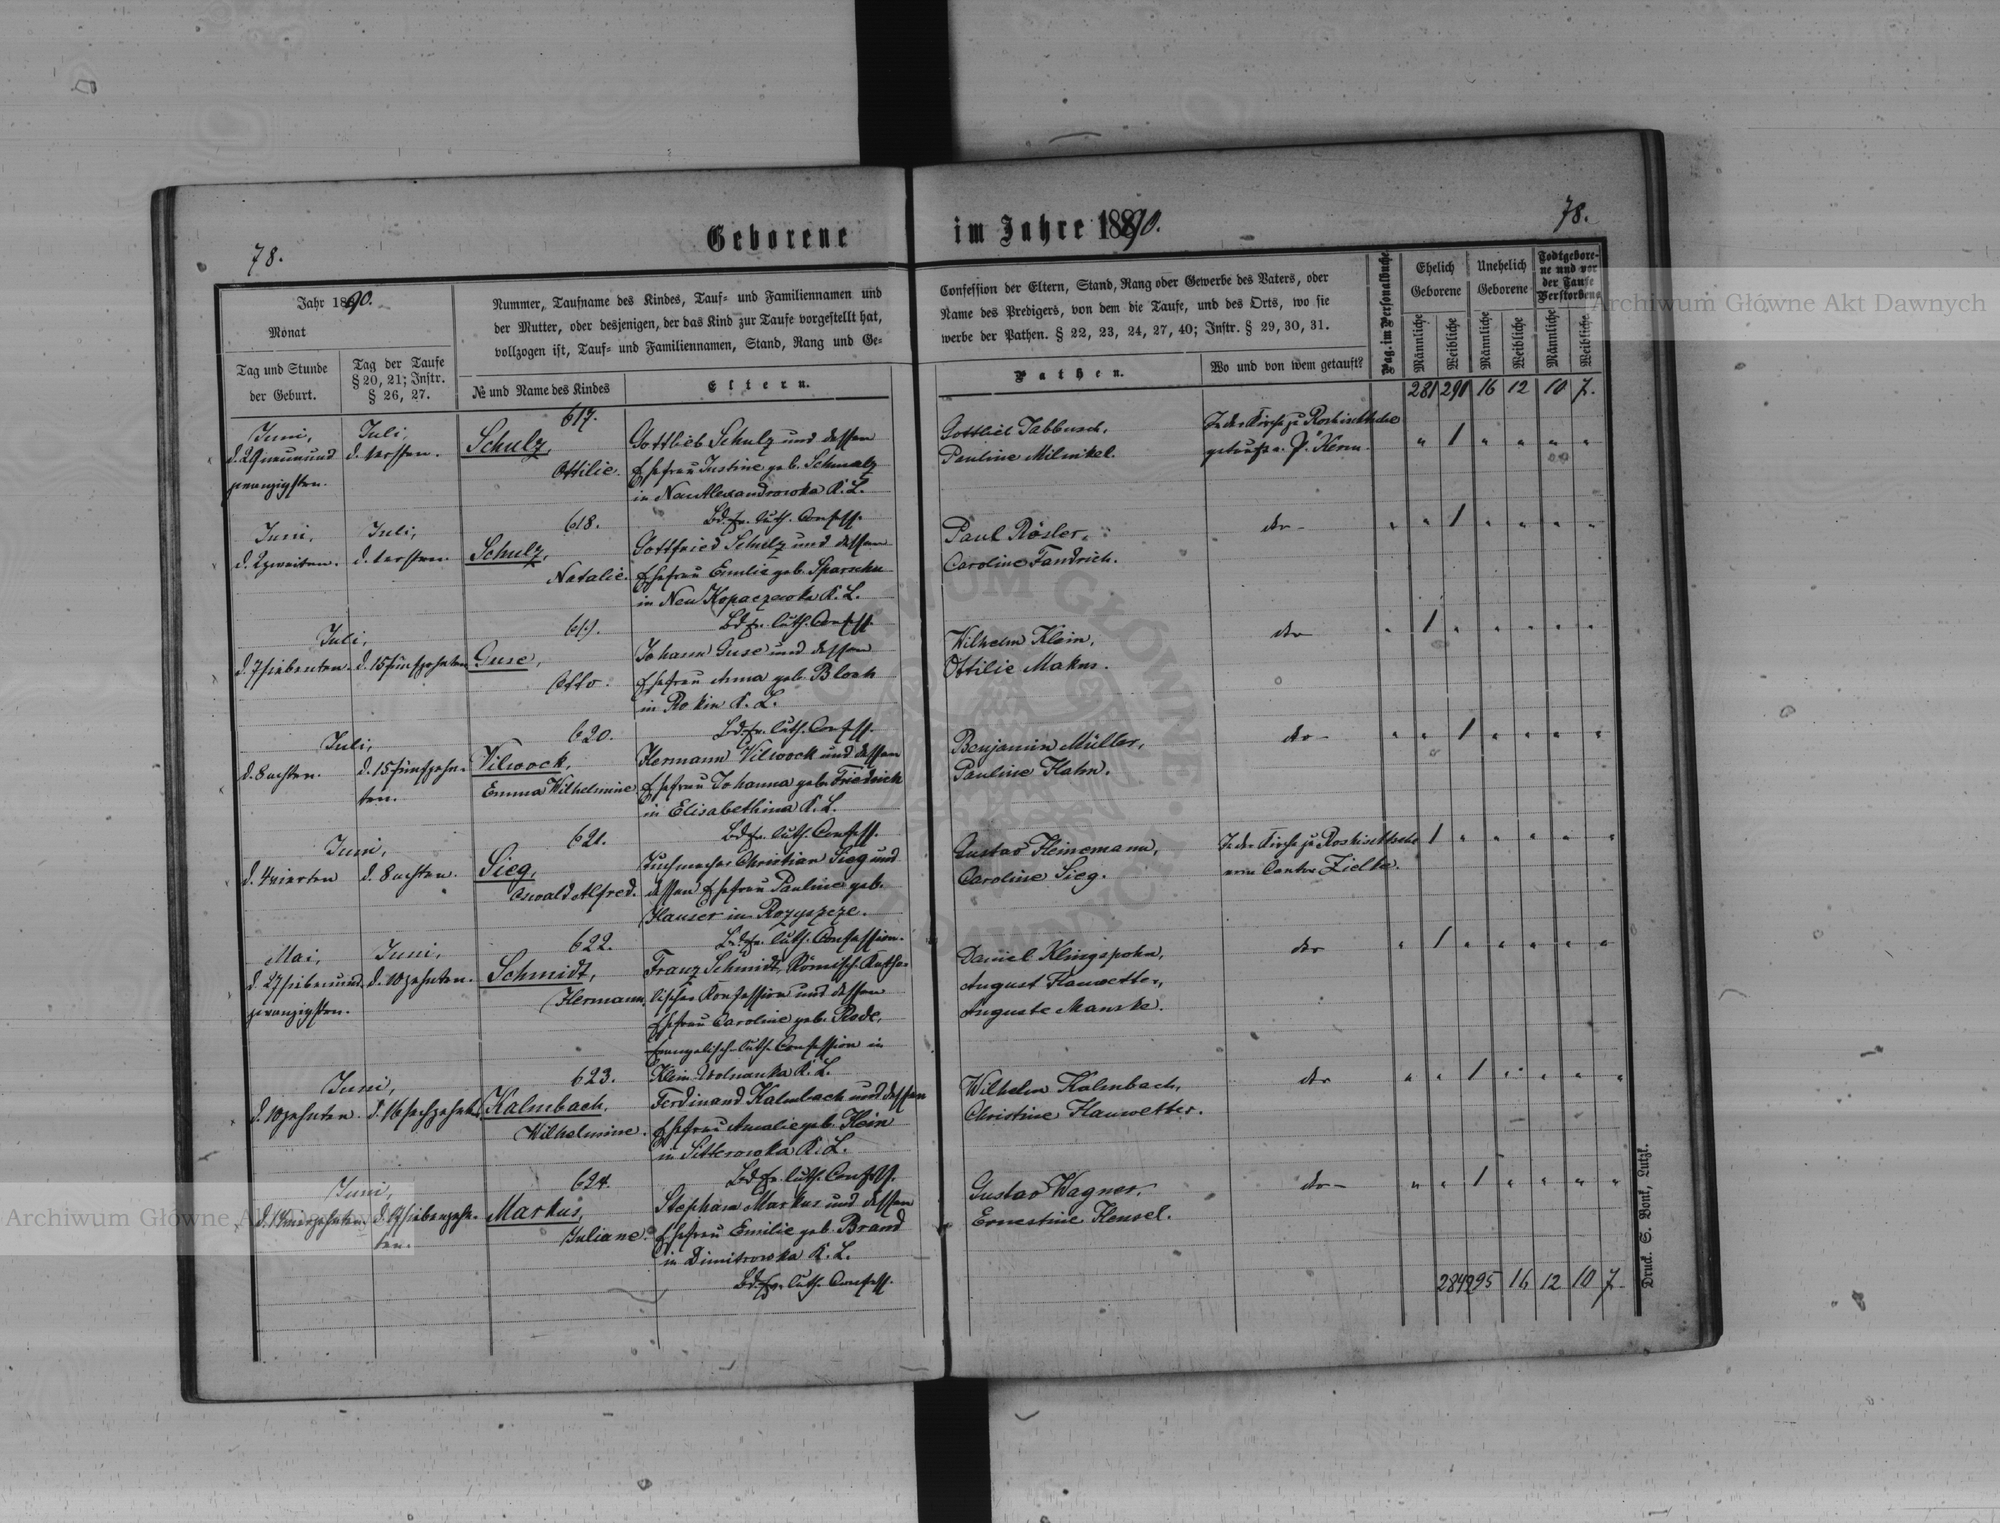 78.
Geborene
im Jahre 1890.
78.
Jahr 1890.
Monat
Tag und Stunde
der Geburt.
Tag der Taufe
§ 20, 21; Instr.
§ 26, 27.
Nummer, Taufname des Kindes, Tauf- und Familiennamen und
der Mutter, oder desjenigen, der das Kind zur Taufe vorgestellt hat,
vollzogen ist, Tauf- und Familiennamen, Stand, Rang und Ge-
№ und Name des Kindes
Eltern.
Confession der Eltern, Stand, Rang oder Gewerbe des Vaters, oder
Name des Predigers, von dem die Taufe, und des Orts, wo sie
werbe der Pathen. § 22, 23, 24, 27, 40; Instr. § 29, 30, 31.
Pathen.
Wo und von wem getauft?
Pag. im Personalbuche
Ehelich
Geborene
Unehelich
Geborene
Todtgebore-
ne und vor
der Taufe
Verstorbene
Männliche
Weibliche
Männliche
Weiblche
Männliche
Weibliche
281 290 16 12 10 7.
617.
Juni,
d. 29 neunund
zwanzigsten.
Juli,
d. 1 ersten.
Schulz,
Ottilie.
Gottlieb Schulz und dessen
Ehefrau Justine geb. Schmalz
in Neu Alexandrowka K. L.
Bd. Ev. luth. Confess.
Gottlieb Tabbusch,
Pauline Milnikel.
In der Kirche zu Roshischtsche
getauft v. P. Kern.
" 1 " " " "
618.
Juni,
d. 2 zweiten.
Juli,
d. 1 ersten.
Schulz,
Natalie.
Gottfried Schulz und dessen
Ehefrau Emilie geb. Sparschu
in Neu Kopaczewka K. L.
Bd. Ev. luth. Confess.
Paul Rösler,
Caroline Fandrich.
do-
" " 1 " " " "
619.
Juli,
d. 7 siebenten.
d. 15 fünfzehnten
Guse,
Otto.
Johann Guse und dessen
Ehefrau Anna geb. Block
in Rokin K. L.
Bd. Ev. luth. Confess.
Wilhelm Klein,
Ottilie Makus.
do-
" 1 " " " " "
620.
Juli,
d. 8 achten.
d. 15 fünfzehn-
ten.
Vilwock,
Emma Wilhelmine
Hermann Vilwock und dessen
Ehefrau Johanna geb. Friedrich
in Elisabethina K. L.
Bd. Ev. luth. Confess.
Benjamin Müller,
Pauline Hahn.
do-
" " 1 " " " "
621.
Juni,
d. 4 vierten
d. 8 achten.
Sieg,
Oswald Alfred.
Tuchmacher Christian Sieg und
dessen Ehefrau Pauline geb.
Hauser in Rozyszcze.
Bd. Ev. luth. Confession.
Gustav Heinemann,
Caroline Sieg.
In der Kirche zu Roshischtsche
vom Cantor Zielke.
1 " " " " "
622.
Mai,
d. 27 siebenund
zwanzigsten.
Juni,
d. 10 zehnten.
Schmidt,
Hermann.
Franz Schmidt, Römisch-Katho-
lischer Konfession und dessen
Ehefrau Caroline geb. Rode,
Evangelisch-luth. Confession in
Klein Wolnanka K. L.
Daniel Klingspohn,
August Hauwetter,
Auguste Manske.
do-
" 1 " " " " "
623.
Juni,
d. 10 zehnten.
d. 16 sechzehnt.
Kalmbach,
Wilhelmine.
Ferdinand Kalmbach und dessen
Ehefrau Amalie geb. Klein
in Sitterowka K. L.
Bd. Ev. luth. Confess.
Wilhelm Kalmbach,
Christine Hauwetter.
do-
" " 1 " " " "
624.
Juni,
d. 14 vierzehnten.
d. 17 siebenzehn-
ten.
Markus,
Juliane.
Stephan Markus und dessen
Ehefrau Emilie geb. Brand
in Dimitrowka K. L.
Bd. Ev. luth. Confess.
Gustav Wagner,
Ernestine Hensel.
do-
" " 1 " " " "
284 295 16 12 10 7.
Druck. S. Bonk, Lutzk.
Archiwum Główne Akt Dawnych
Archiwum Główne A